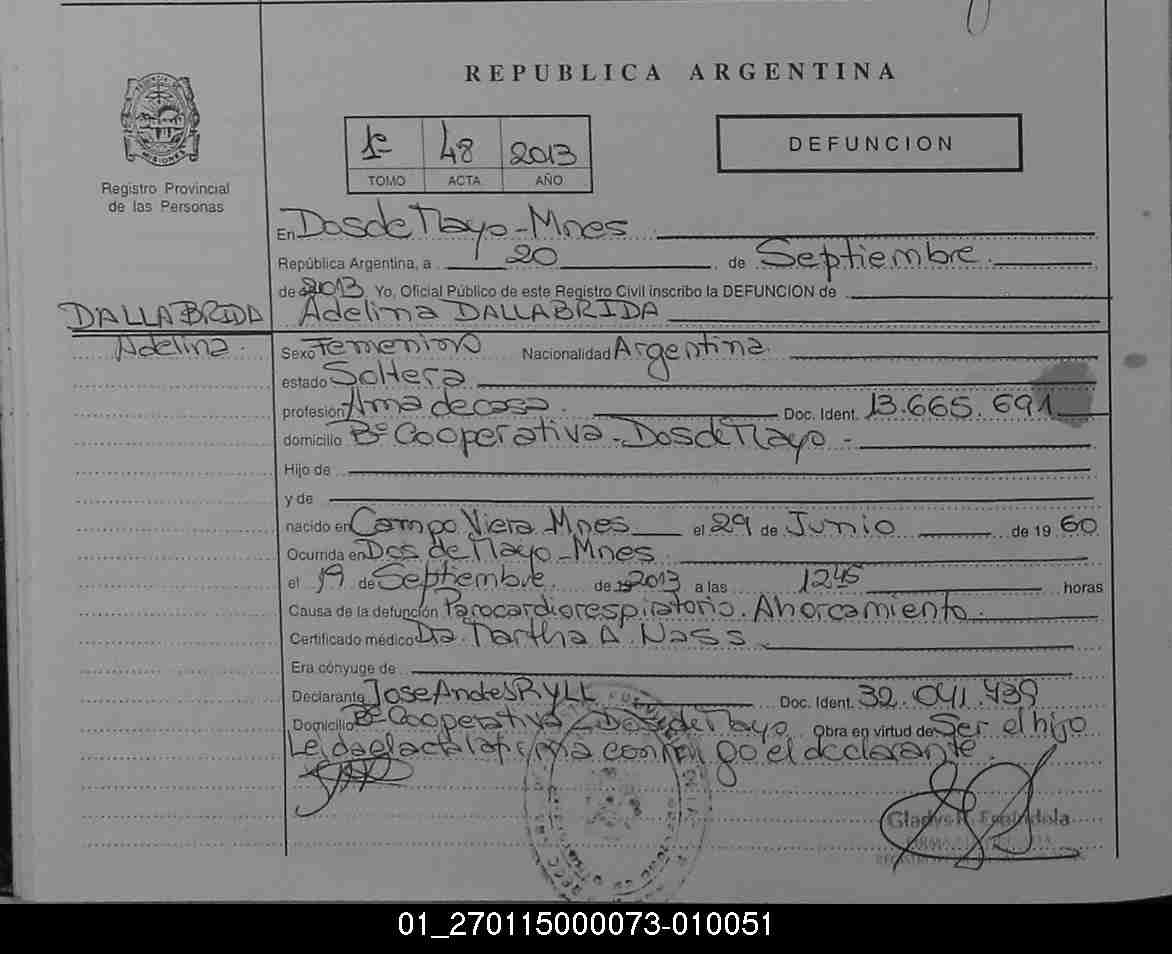 REPUBLICA ARGENTINA
PROVINCIA DE MISIONES
Registro Provincial
de las Personas
1º 48 2013
TOMO ACTA AÑO
DEFUNCION
En Dos de Mayo - Mnes
República Argentina, a 20 de Septiembre.
de 2013 Yo, Oficial Público de este Registro Civil inscribo la DEFUNCION de
DALLABRIDA Adelina DALLABRIDA
Adelina.
Sexo Femenino Nacionalidad Argentina.
estado Soltera
profesión Ama de casa. Doc. Ident. 13.665.691
domicilio Bº Cooperativa - Dos de Mayo -
Hijo de
y de
nacido en Campo Viera Mnes el 29 de Junio de 19 60
Ocurrida en Dos de Mayo - Mnes
el 19 de Septiembre. de 2013 a las 1245 horas
Causa de la defunción Parocardiorespiratorio. Ahorcamiento.
Certificado médico Dra. Martha A. Nass
Era cónyuge de
Declarante Jose Andes RYLL Doc. Ident. 32.041.439
Domicilio Bº Cooperativa - Dos de Mayo Obra en virtud de Ser el hijo
Leida el acta la firma conmigo el declarante.
Gladys
01_270115000073-010051